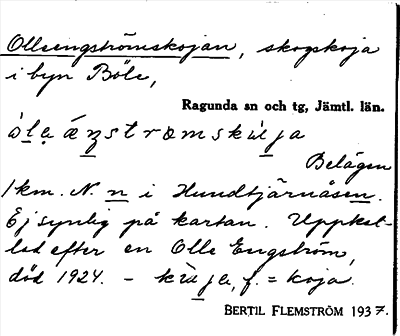 Olleengströmskojan, skogskoja
i byn Böle,
Ragunda sn och tg, Jämtl. län.
Belägen
1 km. N. n i Hundtjärnåsen.
Ej synlig på kartan. Uppkal-
lad efter en Olle Engström,
död 1924. – kùja, f. = koja.
BERTIL FLEMSTRÖM 1937.